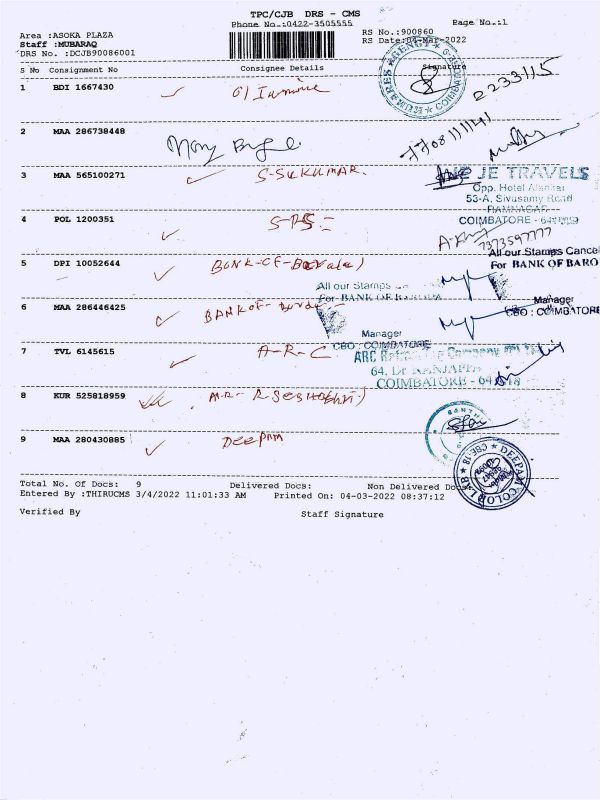 TPC/CJB DRS - CMS
Phone No.:0422-3505555
Page No.:1
Area :ASOKA PLAZA
RS No.:900860
Staff :MUBARAQ
RS Date:04-Mar-2022
DRS No. :DCJB90086001
S No Consignment No Consignee Details Signature
1 BDI 1667430
2233115
2 MAA 286738448
7708111141
3 MAA 565100271 S-SUKUMAR.
JE TRAVELS
Opp. Hotel
53-A, Sivasamy Road
RAMNAGAR
COIMBATORE -
4 POL 1200351
7373597777
All our Stamps Cancel
For BANK OF BARO
5 DPI 10052644 BANK-OF-
All our Stamps
For BANK OF BARODA
Manager
CBO : COIMBATORE
6 MAA 286446425 BANK OF
Manager
CBO : COIMBATORE
7 TVL 6145615 A-R-C
ARC Company
64, Dr
COIMBATORE - 64
8 KUR 525818959
9 MAA 280430885 DEEPAM
DEEPAM COLOR LAB
Total No. Of Docs: 9 Delivered Docs: Non Delivered Docs:
Entered By :THIRUCMS 3/4/2022 11:01:33 AM Printed On: 04-03-2022 08:37:12
Verified By Staff Signature